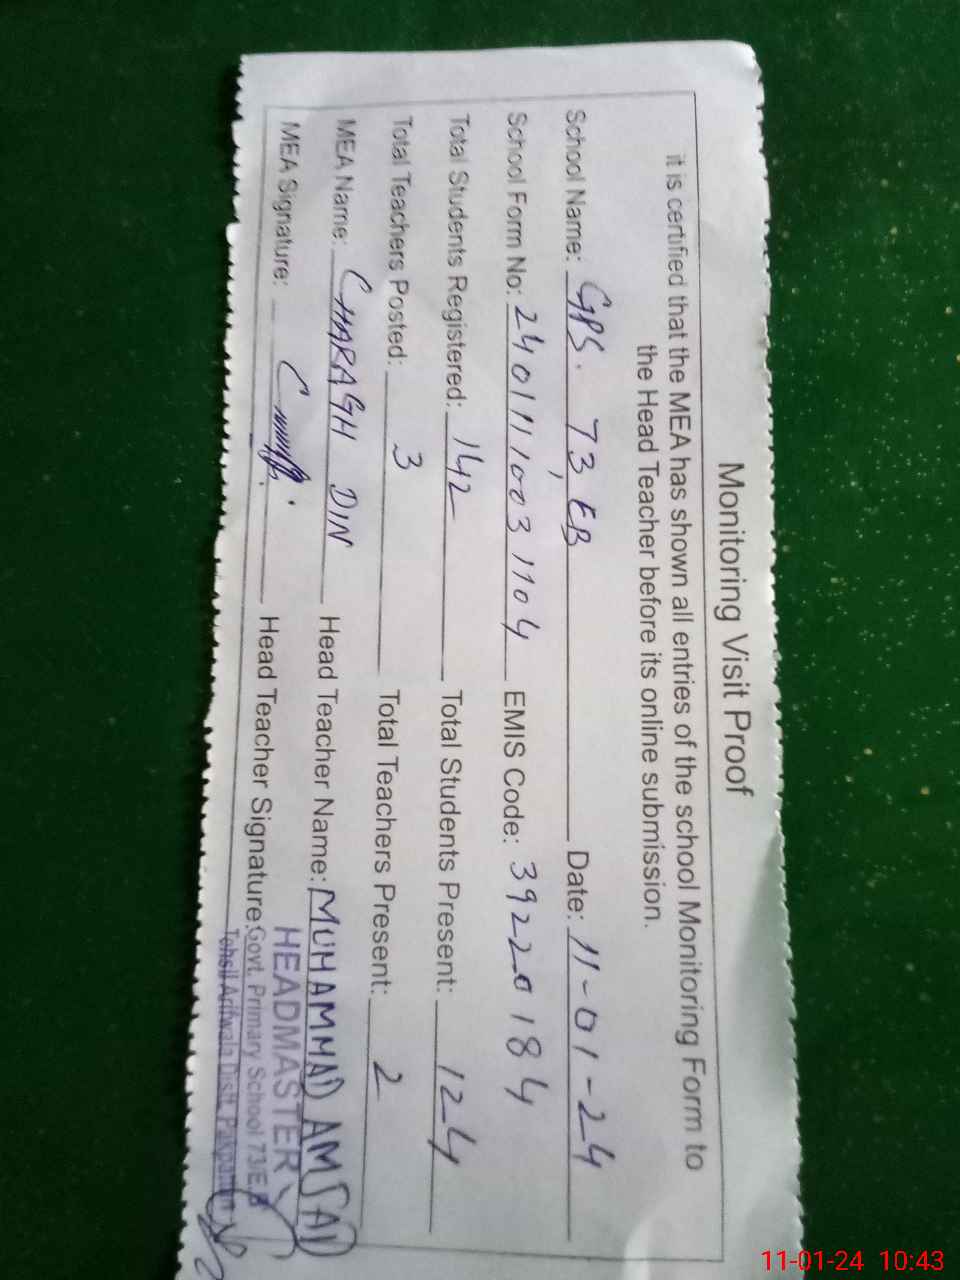 Monitoring Visit Proof
it is certified that the MEA has shown all entries of the school Monitoring Form to
the Head Teacher before its online submission.
School Name: GPS. 73, EB Date: 11-01-24
School Form No: 24011110031104 EMIS Code: 39220184
Total Students Registered: 142 Total Students Present: 124
Total Teachers Posted: 3 Total Teachers Present: 2
MEA Name: CHARAGH DIN Head Teacher Name: MUHAMMAD AMJAD
MEA Signature: Head Teacher Signature:
HEADMASTER
Govt. Primary School 73/E.B
Tehsil Arifwala Distt. Pakpattan
11-01-24 10:43